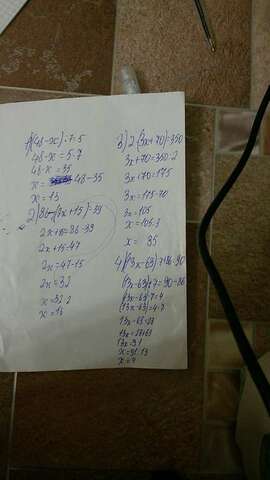 1) (48-x):7=5
48-x=5·7
48-x=35
x= 48-35
x=13
2) 86-(2x+15)=39
2x+15=86-39
2x+15=47
2x=47-15
2x=32
x=32:2
x=16
3) 2·(3x+70)=350
3x+70=350:2
3x+70=175
3x=175-70
3x=105
x=105:3
x=35
4) (13x-63):7+86=90
(13x-63):7=90-86
(13x-63):7=4
(13x-63)=4·7
13x-63=28
13x=28+63
13x=91
x=91:13
x=7